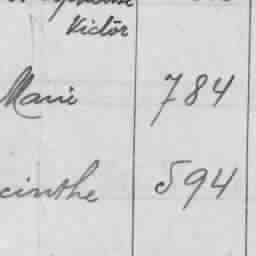 Victor
Marie 784
cinthe 594